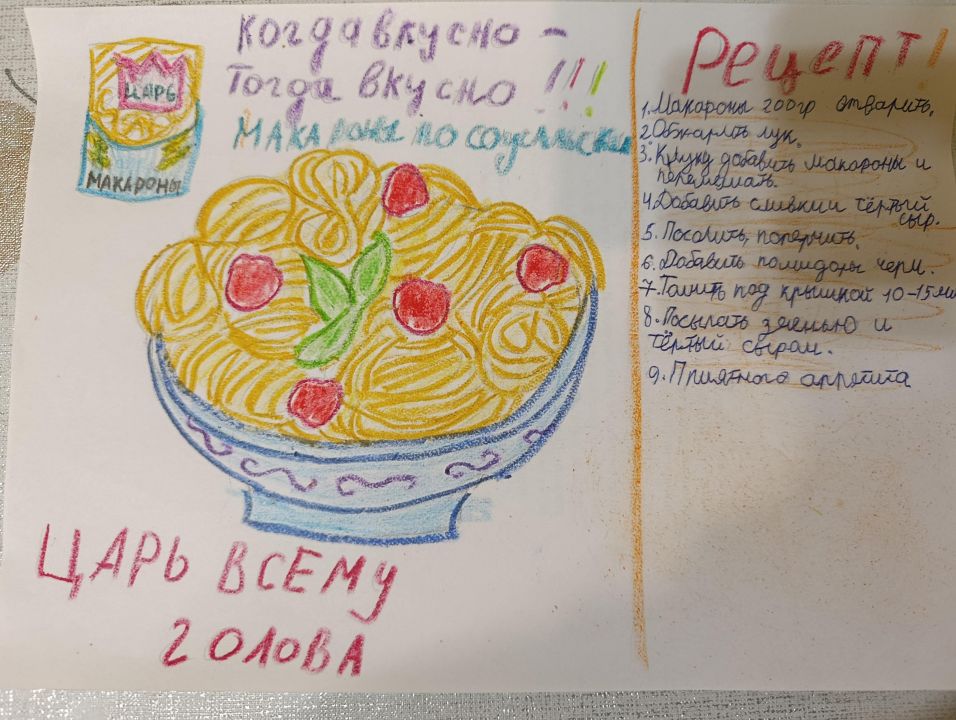 Когда вкусно -
Тогда вкусно !!!
МАКАРОНЫ по
ЦАРЬ
МАКАРОНЫ
ЦАРЬ ВСЕМУ
ГОЛОВА
Рецепт!
1. Макароны 200гр отварить.
2. Обжарить лук.
3. К луку добавить макароны и
перемешать.
4. Добавить сливки и тёртый
сыр.
5. Посолить, поперчить.
6. Добавить помидоры черри.
7. Томить под крышкой 10-15 ми
8. Посыпать зеленью и
тёртый сыром.
9. Приятного аппетита